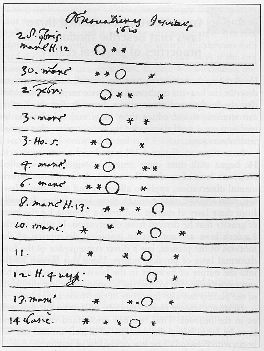 Observationes Jesuitae
1610
2. S. 9bris
mane H. 12 ○ * *
30. mane * * ○ *
2. xbr: ○ * * *
3. mane ○ * *
3. Ho. 5. * ○ *
4. mane. * ○ * *
6. mane * * ○ *
8. mane H. 13. * * * ○
10. mane. * * * ○ *
11. * * ○ *
12. H. 4 vesp: * ○ *
13. mane * * * ○ *
14 * * * ○ *